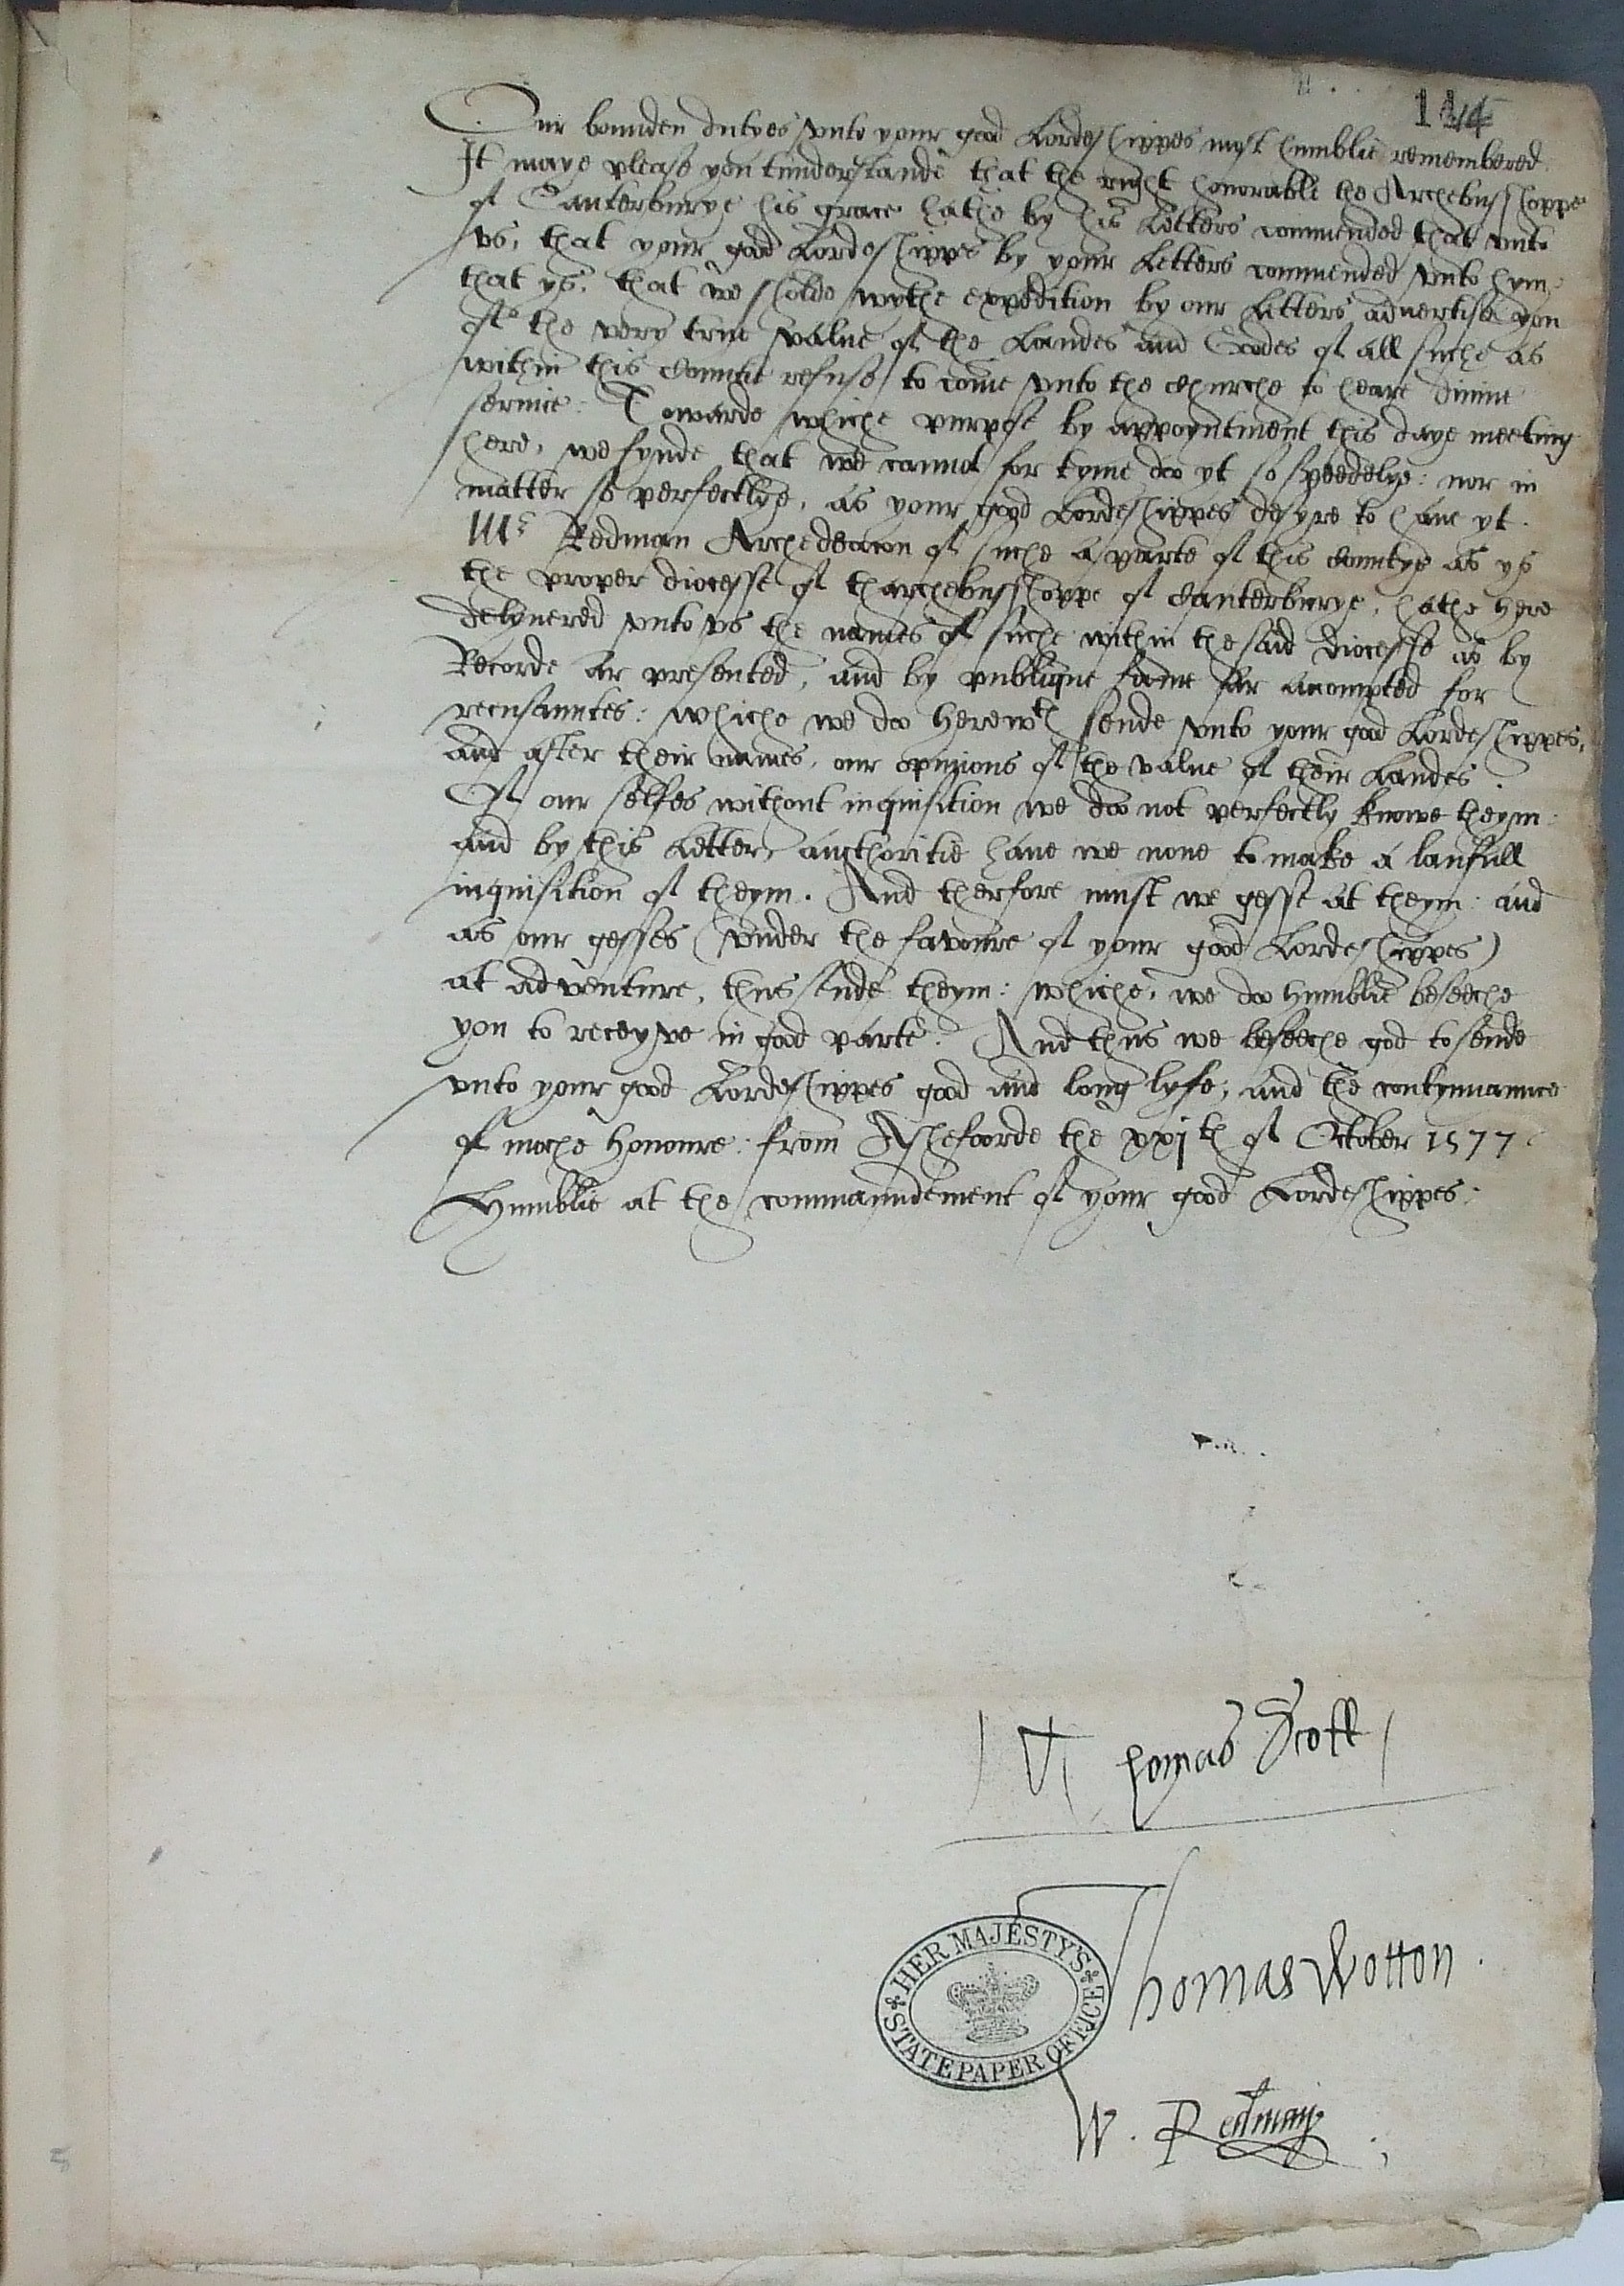 114
Our bounden dutyes vnto your good Lordeshippes most humblie remembered.
It maye please you tunderstande that the right honorable the Archebusshoppe
of Canterburye his grace hathe by his Letters commended that vnto
vs, that your good Lordeshippes by your Letters commended vnto hym,
that ys, that we sholde wythe expedition by our Letters aduertise you
of the very true value of the Landes and Goodes of all suche as
within this Countie refuse to come vnto the churche to heare diuine
seruice. Towarde whiche purpose by appoyntment this daye meeting
here, we fynde that we cannot for tyme doo yt so speedelye: nor in
matter so perfectlye, as your good Lordeshippes desyre to haue yt.
Mr Redman Archedeacon of suche a parte of this Countye as ys
the proper diocesse of tharchebusshoppe of Canterburye, hathe here
delyuered vnto vs the names of suche within the said diocesse as by
Recorde ar presented, and by publique fame ar accompted for
recusauntes: whiche we doo herewth sende vnto your good Lordeshippes,
and after their names, our opinions of the value of their Landes
Of our selfes without inquisition we doo not perfectly knowe theym:
and by this Letter, aucthoritie haue we none to make a laufull
inquisition of theym. And therfore must we gesse at theym: and
as our gesses (vnder the favoure of your good Lordeshippes)
at adventure, thus sende theym: whiche, we doo humblie beseeche
you to receyve in good parte. And thus we beseeche god to sende
vnto your good Lordeshippes good and long lyfe, and the contynuaunce
of moche honoure: from Asshefoorde the xxjth of October 1577
Humblie at the commaundement of your good Lordeshippes:
Thomas Scott
Thomas Wotton.
HER MAJESTY'S STATE PAPER OFFICE
W. Redman